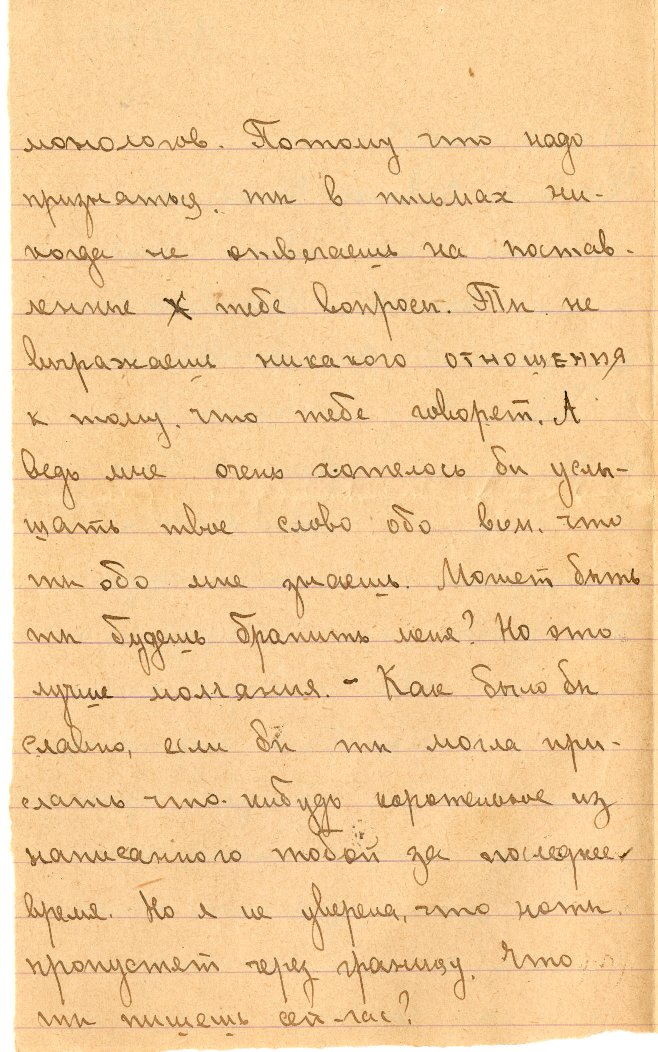 монологов. Потому что надо
признаться, ты в письмах ни-
когда не отвечаешь на постав-
ленные тебе вопросы. Ты не
выражаешь никакого отношения
к тому, что тебе говорят. А
ведь мне очень хотелось бы услы-
шать твое слово обо всем, что
ты обо мне знаешь. Может быть
ты будешь бранить меня? Но это
лучше молчания. - Как было бы
славно, если бы ты могла при-
слать что-нибудь коротенькое из
написанного тобой за последнее
время. Но я не уверена, что ноты
пропустят через границу. Что
ты пишешь сей-час?